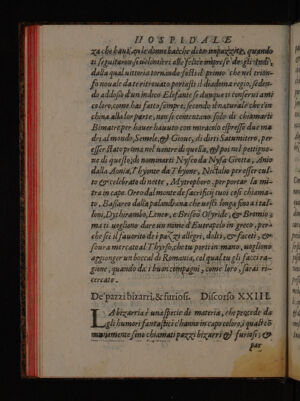 HOSPIDALE
za che haueuan le donne bacche di te impazzite, quando
ti seguitaron sì volontieri alle felici imprese de gli Indi,
dalla qual vittoria tornando fosti il primo che nel trionfo
nouale da te ritrouato portasti il diadema regio, seden
do addosso d'un indico Elefante
coloro, come hai fatto sempre, secondo il naturale che t'in
china alla lor parte, non si contentano solo di chiamarti
Bimatre per hauer hauuto con miracolo espresso due ma
dri al mondo, Semele, & Gioue; di dirti
esser stato prima nel ventre di quella, & poi nel
ne di questo; di nominarti Nyseo da Nysa Gretta, Anio
dalla Aonia, Thyonte da Thyone, Noctulio per esser cul
to & celebrato di notte, Mytrephoro, per portar la mi
tra in capo. Oreo dal monte de sacrificii tuoi così chiama
to, Bassareo dalla palandrana che vesti longa sino a i tal
loni, Dythirambo, Leneo, e Briseo Osyride, & Bromio; ma
ma ti vogliono dare un nome d'Eutrapelo in greco, per-
che sei il fautorito de i pazzi allegri, dolci, & faceti, &
soura mercato al Thyrso, che tu porti in mano, vogliono
aggionger un boccal di Romania, col qual tu gli facci ra
gione, quando da i buon compagni, come loro, sarai ri-
cercato.
De' pazzi bizarri, & furiosi. Discorso XXIII.
LA bizarria è una specie di materia, che procede da
gli humori fantastici c'hanno in capo coloro, i quali cō
munamente sono chiamati pazzi bizarri & furiosi; &
par